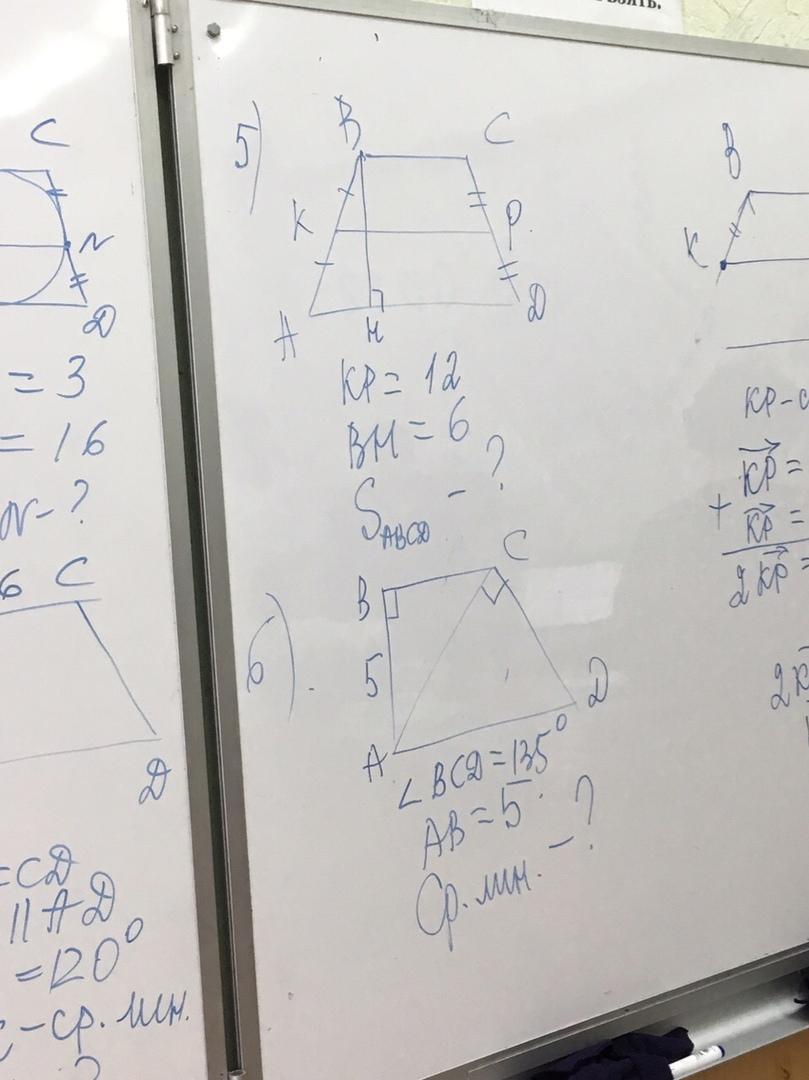 С
N
D
= 3
= 16
N - ?
6 С
D
= CD
|| AD
= 120°
- ср. лин.
?
5)
B
C
K
P
A
H
D
KP = 12
BH = 6
S ABCD - ?
6)
B
C
5
A
D
∠BCD = 135°
AB = 5
Ср. лин. - ?
B
K
KP - с
KP =
+ KP =
2KP =
2K